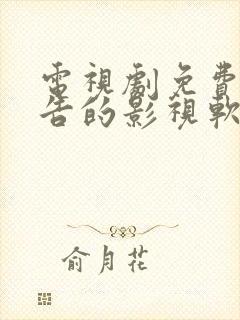 電視劇免費
告的影視軟
俞月花